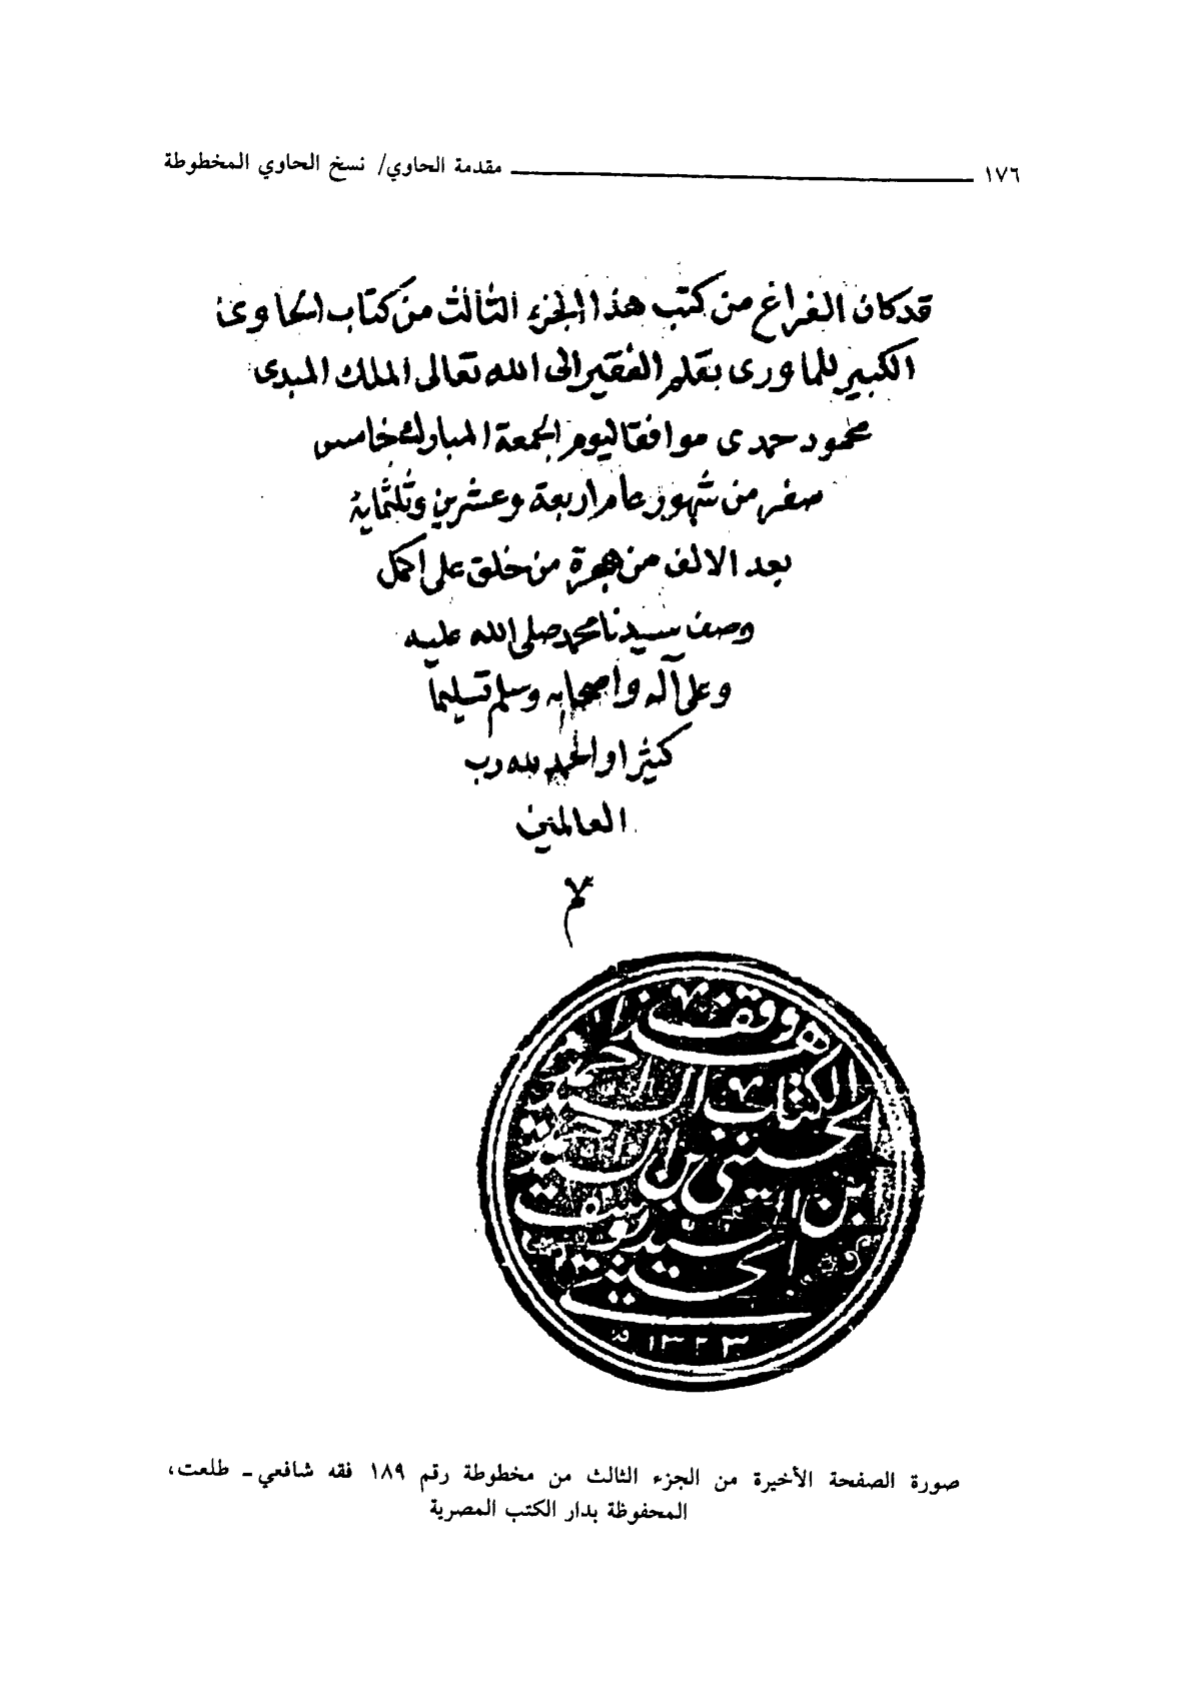 ١٧٦ مقدمة الحاوي/ نسخ الحاوي المخطوطة
قد كان الفراغ من كتب هذا الجزء الثالث من كتاب الحاوى
الكبير للماوردى بقلم الفقير الى الله تعالى الملك المبدى
محمود حمدى موافقا ليوم الجمعة المبارك خامس
صفر من شهور عام اربعة وعشرين وثلثماية
بعد الالف من هجرة من خلق على اكمل
وصف سيدنا محمد صلى الله عليه
وعلى آله واصحابه وسلم تسليما
كثيرا والحمد لله رب
العالمين
وقف
هذا
الكتاب السيد احمد
الحسينى بن السيد احمد
بن السيد يوسف
الحسينى
١٣٢٣
صورة الصفحة الأخيرة من الجزء الثالث من مخطوطة رقم ١٨٩ فقه شافعي ـ طلعت،
المحفوظة بدار الكتب المصرية